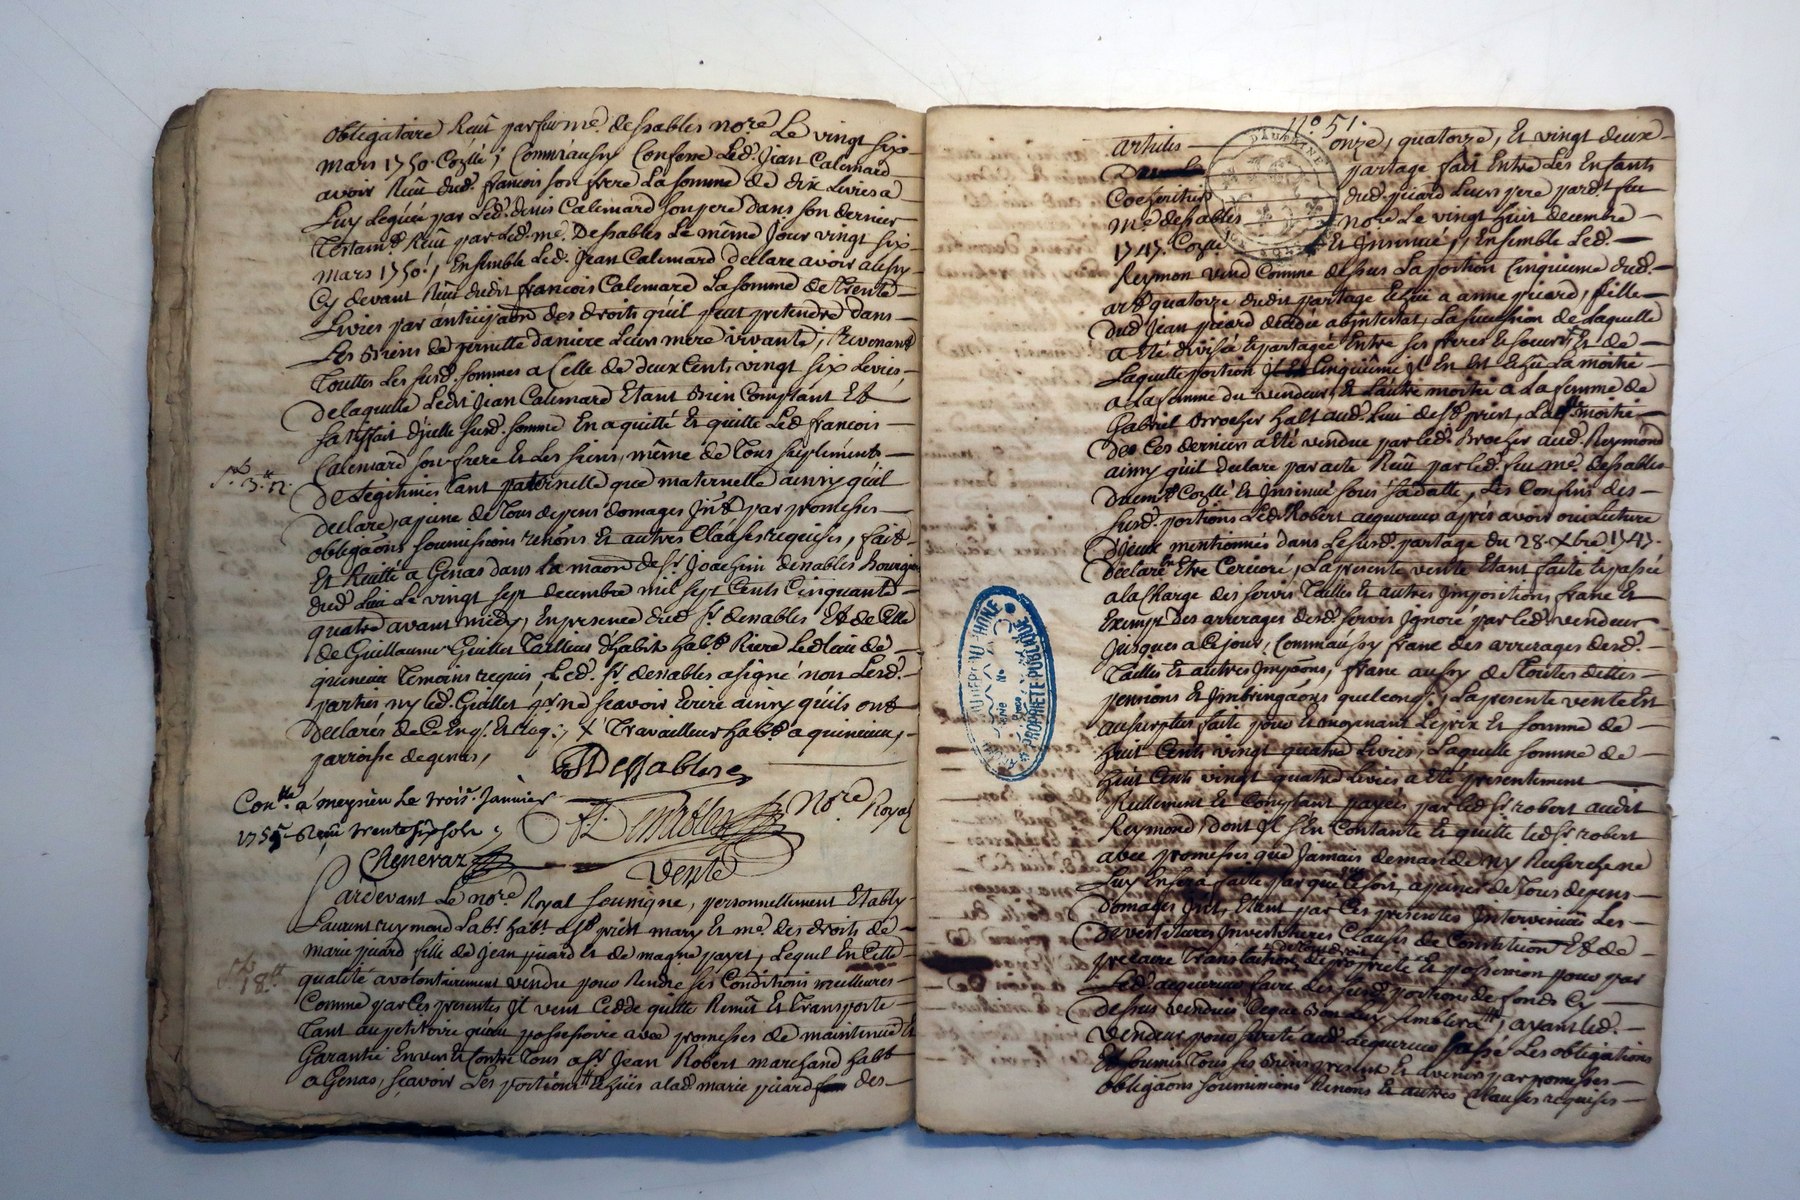 obligatoire Reçû par feu me. dessables nore. Le vingt six
mars 1750. Cozllé; Comm'aussy Confesse Led. Jean Calemard
avoir Reçû dud. françois son frere La somme de dix Livres a
Luy Leguée par Led. denis Calemard son pere dans son dernier
Testamt. Reçû par Led. me. Dessables Le même Jour vingt six
mars 1750; Ensemble Led. Jean Calemard declare avoir aussy
Cy devant Reçû dudit françois Calemard La somme de Trente
Livres par anticipaon des droits qu'il peut pretendre dans
Les Biens de pernette daniere Leur mere vivante, Revenant
Touttes Les susd. sommes a Celle de deux Cents vingt six Livres,
de laquelle Ledit Jean Calemard Etant Bien Comptant Et
satisffait d'jcelle susd. somme En a quitté Et quitte Led. françois
Calemard son frere Et Les siens, même de Tous supléments
De Legitimes Tant paternelle que maternelle ainsy qu'il
declare, a peine de Tous depens domages Jnts. par promesses
obligaons soumissions renons Et autres Clauses requises, fait
Et Recitté a Genas dans la maon de sr. Joachim denables Bourgeois
dud. Lieu Le vingt sept decembre mil sept Cents Cinquante
quatre avant midy, En presence dud. sr. denables Et de
de Guillaume Guillet Tailleur d'habit habt. Riere Led. Lieu de
quinieux Temoins requis Led. sr. denables a signé non Lesd.
parties ny led. Guillet pr. ne sçavoir Ecrire ainsy qu'ils ont
Declarés de Ce Enq. Et Req. ; X Travailleur habt. a quinieux,
parroisse de genas,
Dessables
Denables
Nore. Royal
Conlle. a meyzieu Le trois. Janvier
1755 Reçu trente six sols
Chenevaz
Vente
Pardevant Le nore. Royal soussigne, personnellement Etably
Laurent reymond Labr. habt. a st. priest mary Et me. des droits de
marie picard fille de Jean picard Et de magne payet, Lequel En Cette
qualité a volontairement vendu pour Rendre ses Conditions meilleures
Comme par Ces presentes Jl vent Cedde quitte Remet Et Transporte
Tant au petitoire qu'au possessoire avec promesses de maintenue Et
Garantie Envers Et Contre Tous a sr. Jean Robert marchand habt.
a Genas, sçavoir Les portions Echües a lad. marie picard des
No. 51.
articles onze, quatorze, Et vingt deux
partage fait Entre Les Enfants
Coëheritiers dud. picard Leurs pere pard. feu
me. dessables nore. Le vingt huit decembre
1747. Cozllé Et Jnsinué, Ensemble Led.
Reymon vend Comme dessus La portion Cinquieme dud.
art. quatorze dudit partage Echüe a anne picard, fille
dud. Jean picard decedée abjntestat, La succession de Laquelle
a Eté divisée Et partagée Entre ses freres Et soeurs, Et de
Laquelle portion Cinquieme Jl En est Echû La moitié
a La femme du vendeur, Et L'autre moitié a La femme de
Gabriel Brochier habt. aud. Lieu de st. priest, La moitié
De Ces derniers a Eté vendue par led. Brochier aud. Reymond
ainsy qu'il declare par acte Reçû par led. feu me. dessables
duemt. Cozllé Et Jnsinué sous sa datte, Les Confins des
susd. portions Led. Robert acquereur après avoir oui Lecture
d'jceux mentionnés dans Le susd. partage du 28. Xbre 1747.
Declare Etre Cercioré, La presente vente Etant faite Et passée
a la Charge des servis Tailles Et autres Jmpositions franc Et
Exempt Des arrerages desd. servis Jgnoré par Led. vendeur
Jusques a Ce jour, Comm'aussy franc des arrerages desd.
Tailles Et autres Jmpaons, franc aussy de Toutes dettes
pensions Et Jmbringaons quelconq., La presente vente Est
au surplus faite pour Et moyenant Le prix Et somme de
huit Cents vingt quatre Livres, Laquelle somme de
huit Cents vingt quatre Livres a Eté presentement
Reellement Et Comptant payée par led. sr. robert audit
Reymond, dont Jl s'En Contante Et quitte led. sr. robert
avec promesses que Jamais demande ny Recherche ne
Luy En sera faite par qui que Ce soit, a peine de Tous depens
domages Jnts. Etant par Ces presentes Jntervenües Les
devestitures Jnvestitures Clauses de Constitution Et de
precaire Translation de proprieté Et possession pour par
Led. acquereur faire des susd. portions de fonds Cy
dessus vendües Ce que Bon Luy semblera, ayant led.
Vendeur pour sureté aud. acquereur passé Les obligations
Et soumis Tous ses Biens present Et avenir par promesses
obligaons soumissions Renons Et autres Clauses requises
DAUPHINÉ
PROPRIÉTÉ PUBLIQUE